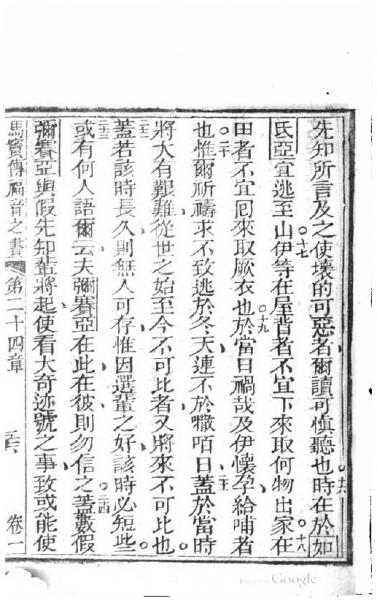 先知所言及之使壞的可惡者爾讀可慎聽也時在於如
氐亞宜逃至山伊等在屋背者不宜下來取何物出家在
田者不宜囘來取厥衣也於當日禍哉及伊懷孕給哺者
也惟爾祈禱求不致逃於冬天連不於嘞咟日蓋於當時
將大有艱難從世之始至今不可比者又將來不可比也
蓋若該時長久則無人可存惟因選輩之好該時必短些
或有何人語爾云夫彌賽亞在此在彼則勿信之蓋數假
彌賽亞與假先知輩將起使看大奇迹號之事致或能使
馬竇傳福音之書 第二十四章 卷一
十六
十七
十八
十九
二十
二一
二二
二三
二四
Google